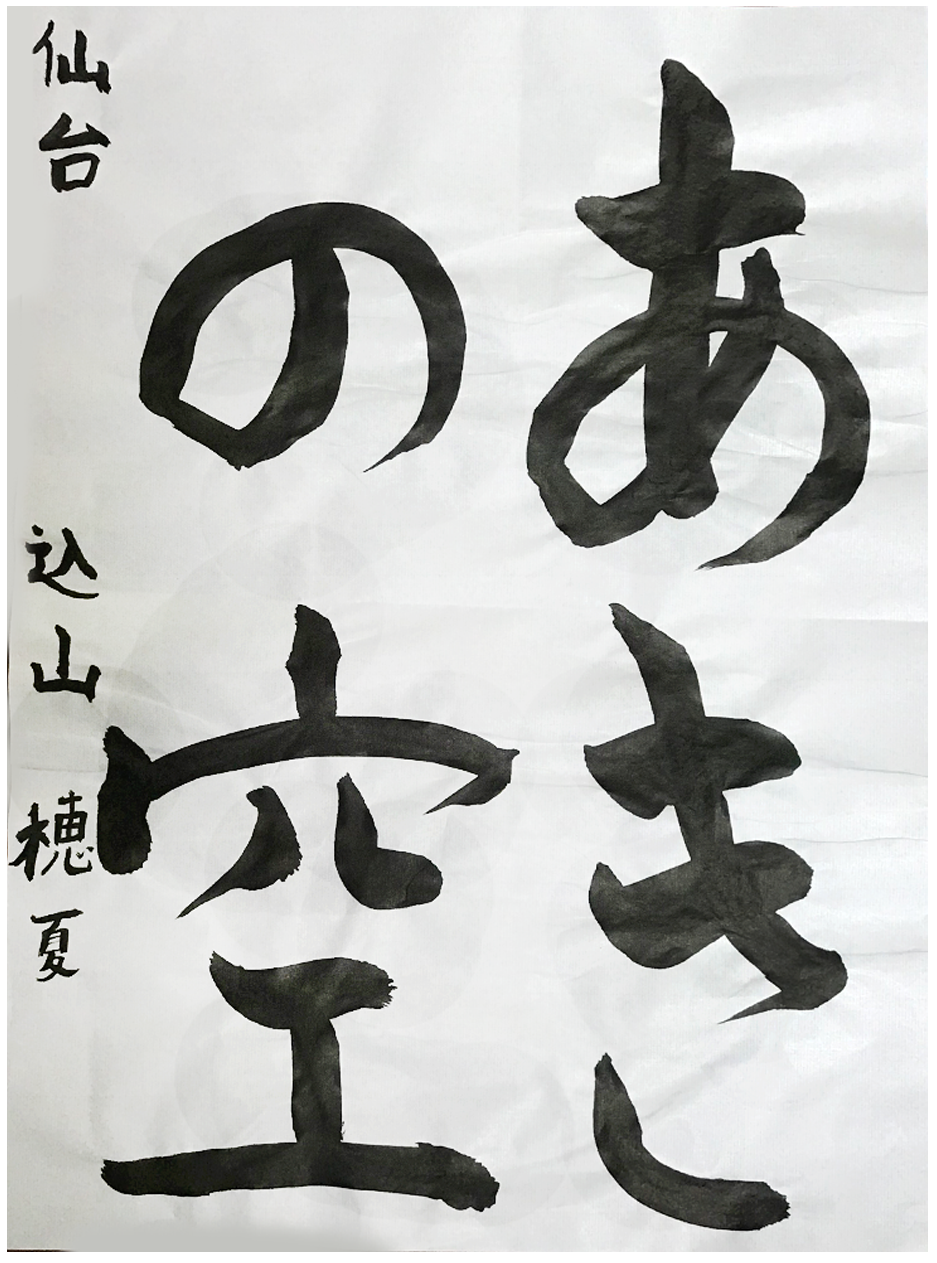 あき
の空
仙台 込山 穂夏